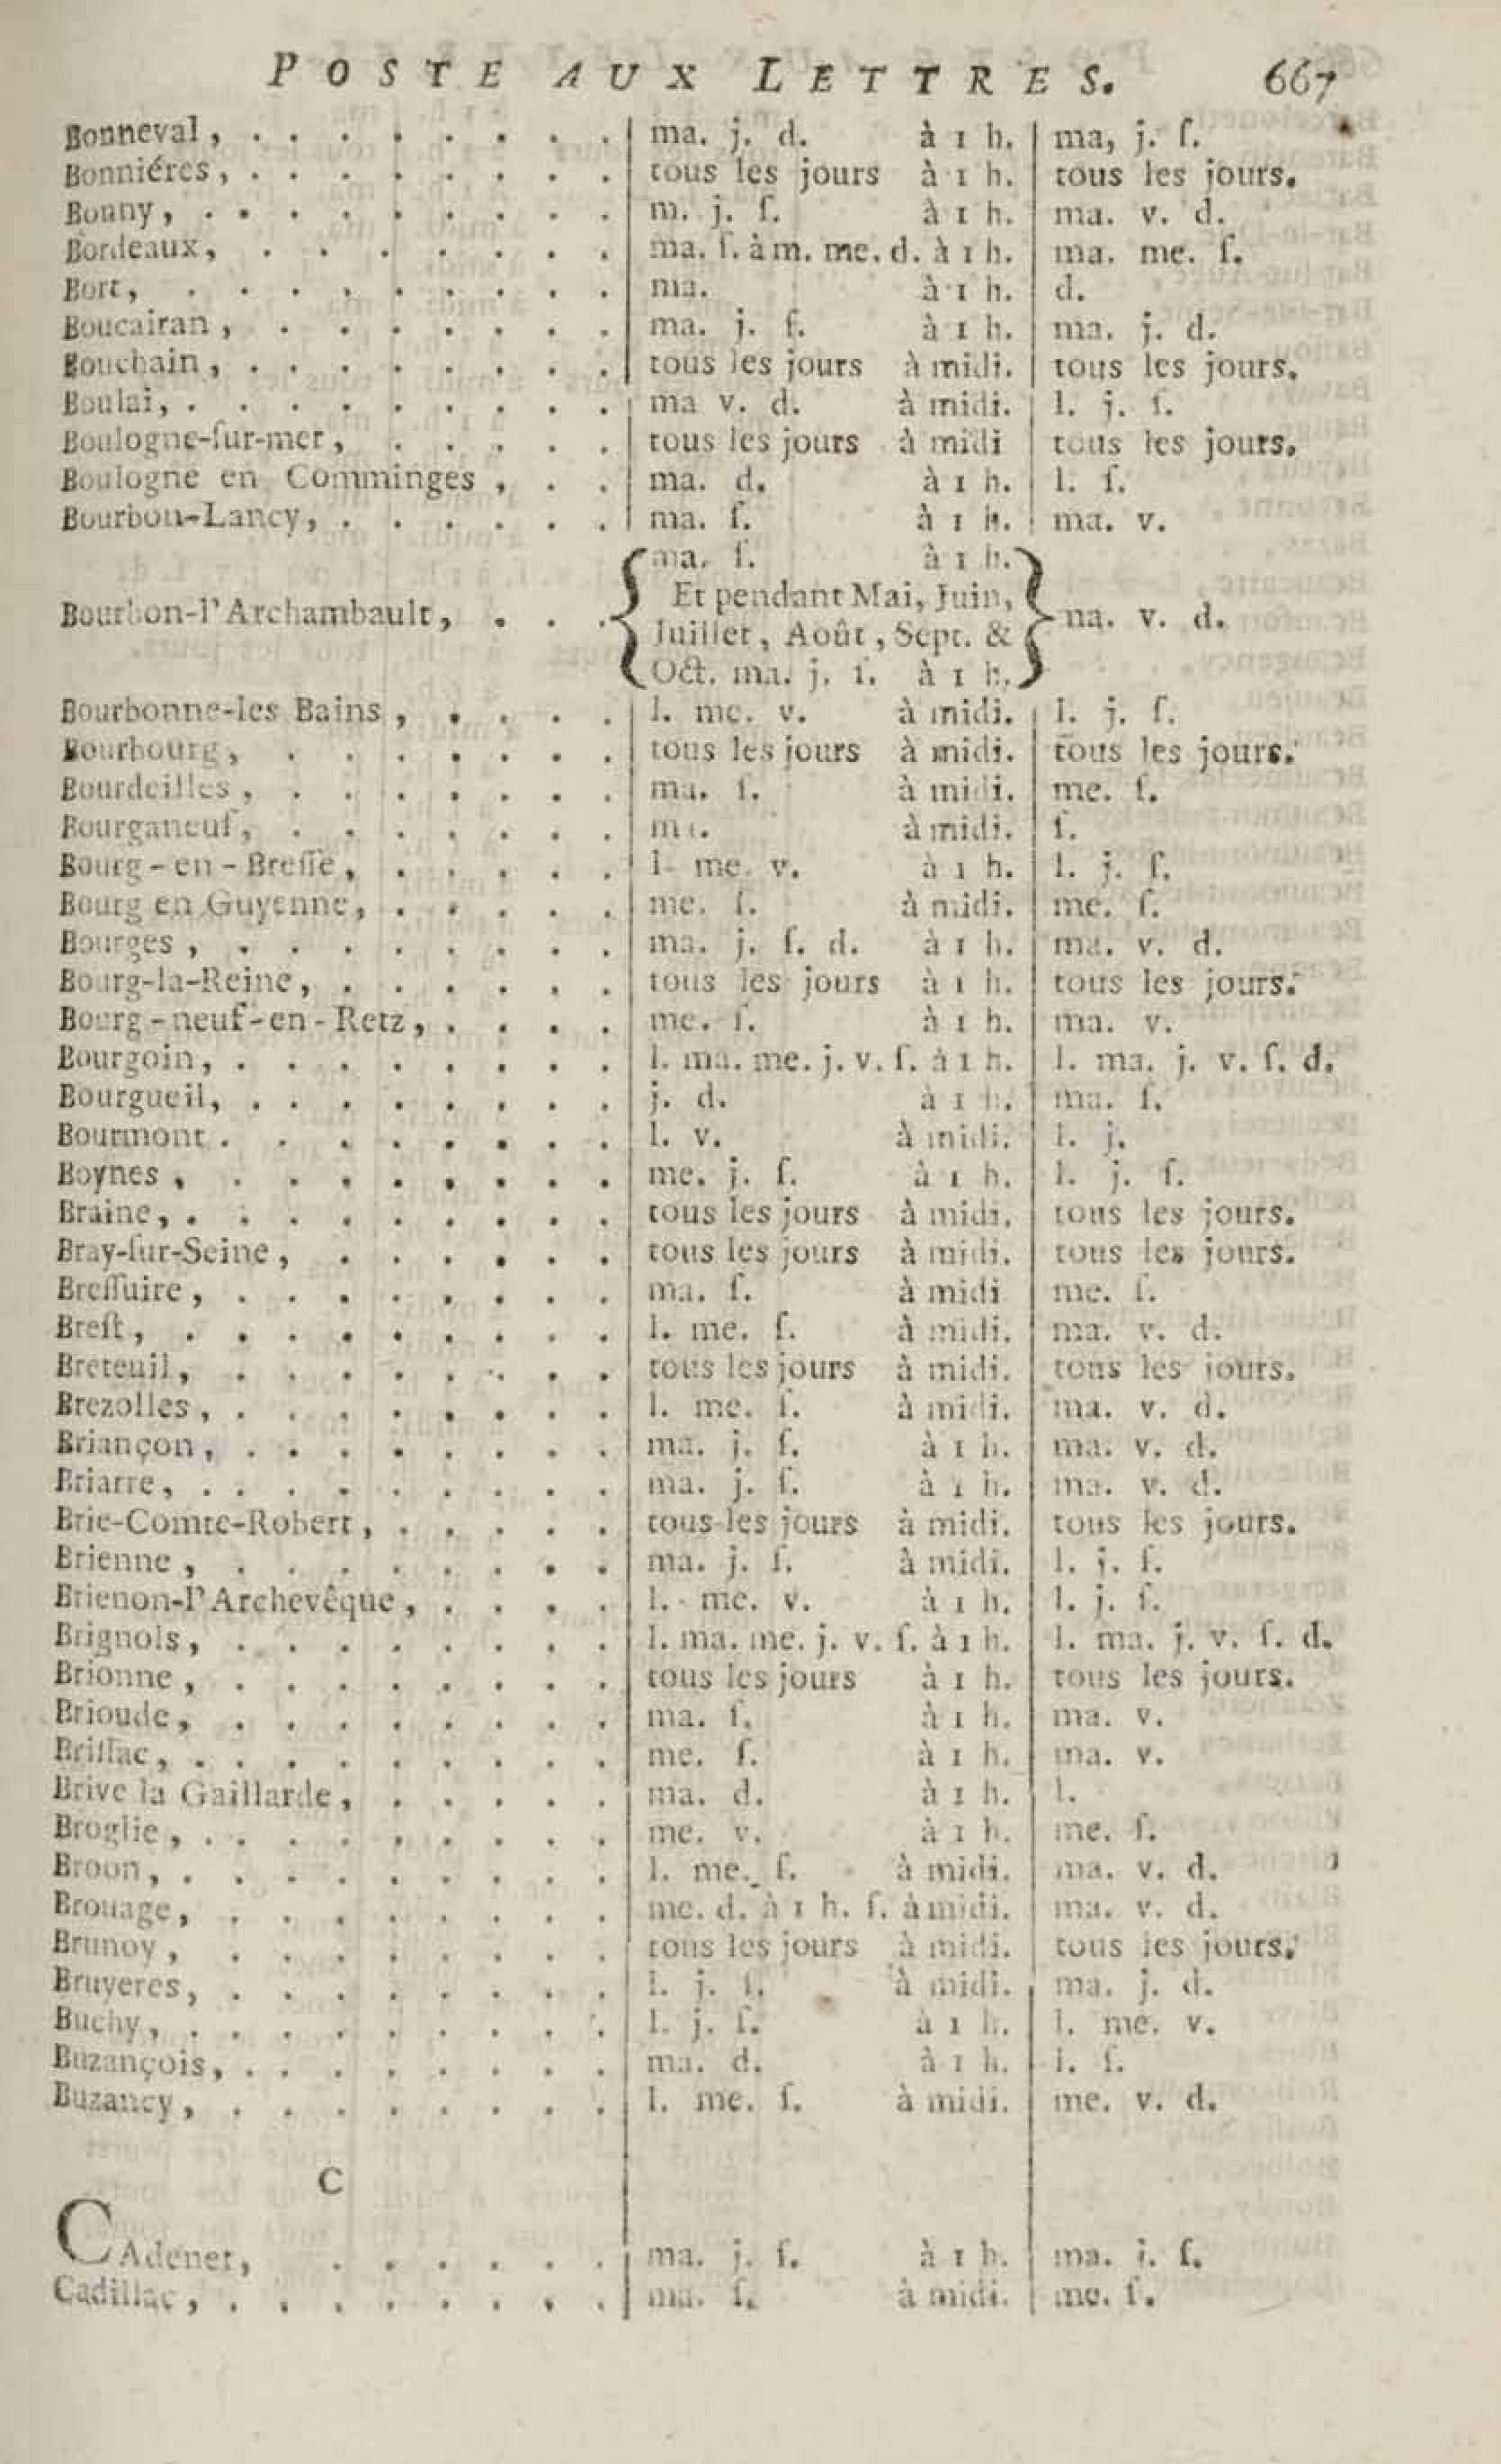 POSTE AUX LETTRES. 667
Bonneval, . . . . . . . . ma. j. d. à 1 h. ma, j. ſ.
Bonniéres, . . . . . . . . tous les jours à 1 h. tous les jours.
Bonny, . . . . . . . . . m. j. ſ. à 1 h. ma. v. d.
Bordeaux, . . . . . . . ma. ſ. à m. me. d. à 1 h. ma. me. ſ.
Bort, . . . . . . . . . ma. à 1 h. d.
Boucairan, . . . . . . . ma. j. ſ. à 1 h. ma. j. d.
Bouchain, . . . . . . . . tous les jours à midi. tous les jours.
Boulai, . . . . . . . . . ma v. d. à midi. l. j. ſ.
Boulogne-ſur-mer, . . . . . tous les jours à midi tous les jours.
Boulogne en Comminges, . . . ma. d. à 1 h. l. ſ.
Bourbon-Lancy, . . . . . . ma. ſ. à 1 h. ma. v.
ma. ſ. à 1 h.
Et pendant Mai, Juin,
Bourbon-l'Archambault, . . . na. v. d.
Juillet, Août, Sept. &
Oct. ma. j. ſ. à 1 h.
Bourbonne-les Bains, . . . . l. me. v. à midi. l. j. ſ.
Bourbourg, . . . . . . . tous les jours à midi. tous les jours.
Bourdeilles, . . . . . . . ma. ſ. à midi. me. ſ.
Bourganeuf, . . . . . . . ma. à midi. ſ.
Bourg-en-Breſſe, . . . . . l. me. v. à 1 h. l. j. ſ.
Bourg en Guyenne, . . . . . me. ſ. à midi. me. ſ.
Bourges, . . . . . . . . ma. j. ſ. d. à 1 h. ma. v. d.
Bourg-la-Reine, . . . . . . tous les jours à 1 h. tous les jours.
Bourg-neuf-en-Retz, . . . . me. ſ. à 1 h. ma. v.
Bourgoin, . . . . . . . . l. ma. me. j. v. ſ. à 1 h. l. ma. j. v. ſ. d.
Bourgueil, . . . . . . . . j. d. à 1 h. ma. ſ.
Bourmont . . . . . . . . l. v. à midi. l. j.
Boynes, . . . . . . . . me. j. ſ. à 1 h. l. j. ſ.
Braine, . . . . . . . . . tous les jours à midi. tous les jours.
Bray-ſur-Seine, . . . . . . tous les jours à midi. tous les jours.
Breſſuire, . . . . . . . . ma. ſ. à midi me. ſ.
Breſt, . . . . . . . . . l. me. ſ. à midi. ma. v. d.
Breteuil, . . . . . . . . tous les jours à midi. tous les jours.
Brezolles, . . . . . . . . l. me. ſ. à midi. ma. v. d.
Briançon, . . . . . . . . ma. j. ſ. à 1 h. ma. v. d.
Briarre, . . . . . . . . ma. j. ſ. à 1 h. ma. v. d.
Brie-Comte-Robert, . . . . . tous les jours à midi. tous les jours.
Brienne, . . . . . . . . ma. j. ſ. à midi. l. j. ſ.
Brienon-l'Archevêque, . . . . l. me. v. à 1 h. l. j. ſ.
Brignols, . . . . . . . . l. ma. me. j. v. ſ. à 1 h. l. ma. j. v. ſ. d.
Brionne, . . . . . . . . tous les jours à 1 h. tous les jours.
Brioude, . . . . . . . . ma. ſ. à 1 h. ma. v.
Briſſac, . . . . . . . . . me. ſ. à 1 h. ma. v.
Brive la Gaillarde, . . . . . ma. d. à 1 h. l.
Broglie, . . . . . . . . . me. v. à 1 h. me. ſ.
Broon, . . . . . . . . . l. me. ſ. à midi. ma. v. d.
Brouage, . . . . . . . . me. d. à 1 h. ſ. à midi. ma. v. d.
Brunoy, . . . . . . . . tous les jours à midi. tous les jours.
Bruyeres, . . . . . . . . l. j. ſ. à midi. ma. j. d.
Buchy, . . . . . . . . . l. j. ſ. à 1 h. l. me. v.
Buzançois, . . . . . . . . ma. d. à 1 h. l. ſ.
Buzancy, . . . . . . . . l. me. ſ. à midi. me. v. d.
C
CAdenet, . . . . . . ma. j. ſ. à 1 h. ma. j. ſ.
Cadillac, . . . . . . . . ma. ſ. à midi. me. ſ.